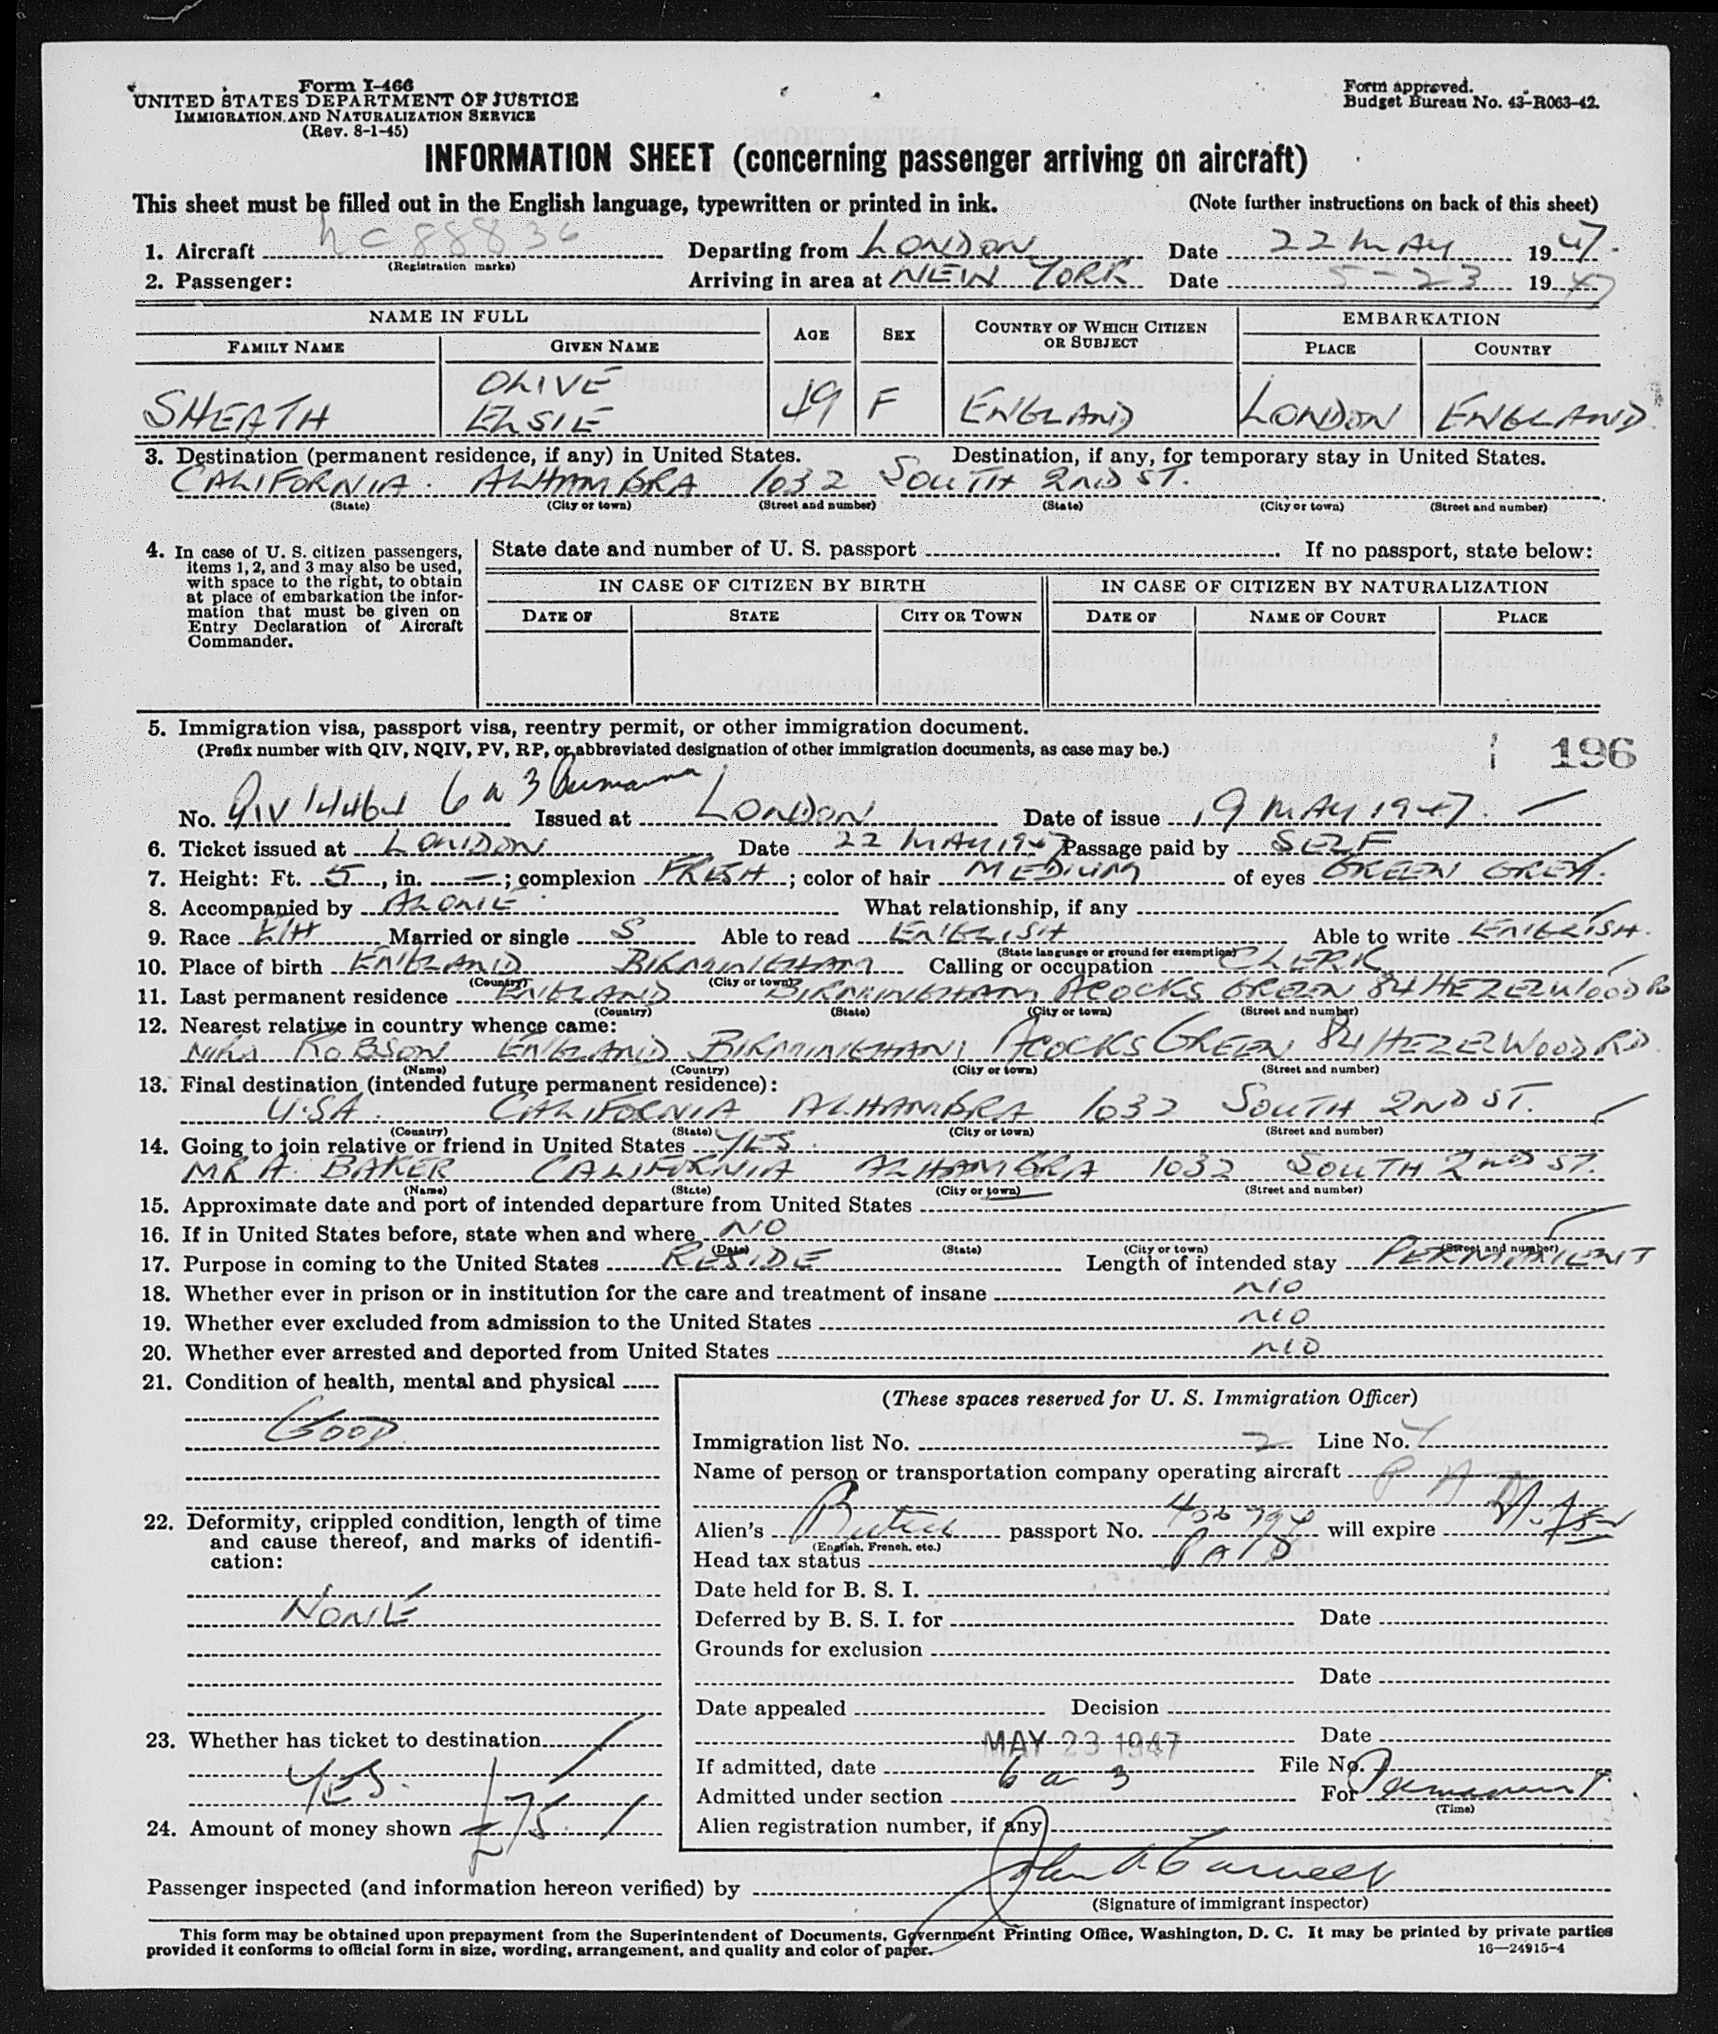 Form I-466
UNITED STATES DEPARTMENT OF JUSTICE
IMMIGRATION AND NATURALIZATION SERVICE
(Rev. 8-1-45)
Form approved.
Budget Bureau No. 43-R063-42.
INFORMATION SHEET (concerning passenger arriving on aircraft)
This sheet must be filled out in the English language, typewritten or printed in ink. (Note further instructions on back of this sheet)
1. Aircraft NC 88836 Departing from LONDON Date 22 MAY 1947.
(Registration marks)
2. Passenger: Arriving in area at NEW YORK Date 5-23 1947
NAME IN FULL AGE SEX COUNTRY OF WHICH CITIZEN OR SUBJECT EMBARKATION
FAMILY NAME GIVEN NAME PLACE COUNTRY
SHEATH OLIVE ELSIE 49 F ENGLAND LONDON ENGLAND
3. Destination (permanent residence, if any) in United States. Destination, if any, for temporary stay in United States.
CALIFORNIA. ALHAMBRA 1032 SOUTH 2ND ST.
(State) (City or town) (Street and number) (State) (City or town) (Street and number)
4. In case of U. S. citizen passengers,
items 1, 2, and 3 may also be used,
with space to the right, to obtain
at place of embarkation the infor-
mation that must be given on
Entry Declaration of Aircraft
Commander.
State date and number of U. S. passport If no passport, state below:
IN CASE OF CITIZEN BY BIRTH IN CASE OF CITIZEN BY NATURALIZATION
DATE OF STATE CITY OR TOWN DATE OF NAME OF COURT PLACE
5. Immigration visa, passport visa, reentry permit, or other immigration document.
(Prefix number with QIV, NQIV, PV, RP, or abbreviated designation of other immigration documents, as case may be.)
196
No. QIV 14464 6 a 3 Issued at LONDON Date of issue 19 MAY 1947.
6. Ticket issued at LONDON Date 22 MAY 1947 Passage paid by SELF
7. Height: Ft. 5, in. —; complexion FRESH; color of hair MEDIUM of eyes GREEN GREY.
8. Accompanied by ALONE What relationship, if any
9. Race Married or single S Able to read ENGLISH Able to write ENGLISH.
(State language or ground for exemption)
10. Place of birth ENGLAND BIRMINGHAM Calling or occupation CLERK
(Country) (City or town)
11. Last permanent residence ENGLAND BIRMINGHAM ACOCKS GREEN 84 HEZELWOOD RD
(Country) (State) (City or town) (Street and number)
12. Nearest relative in country whence came:
ROBSON ENGLAND BIRMINGHAM ACOCKS GREEN 84 HEZELWOOD RD.
(Name) (Country) (City or town) (Street and number)
13. Final destination (intended future permanent residence):
U.S.A. CALIFORNIA ALHAMBRA 1032 SOUTH 2ND ST.
(Country) (State) (City or town) (Street and number)
14. Going to join relative or friend in United States YES.
MR A. BAKER CALIFORNIA ALHAMBRA 1032 SOUTH 2ND ST.
(Name) (State) (City or town) (Street and number)
15. Approximate date and port of intended departure from United States
16. If in United States before, state when and where NO
(Date) (State) (City or town) (Street and number)
17. Purpose in coming to the United States RESIDE Length of intended stay PERMANENT
18. Whether ever in prison or in institution for the care and treatment of insane NO
19. Whether ever excluded from admission to the United States NO
20. Whether ever arrested and deported from United States NO
21. Condition of health, mental and physical
GOOD.
22. Deformity, crippled condition, length of time
and cause thereof, and marks of identifi-
cation:
NONE
23. Whether has ticket to destination
YES.
24. Amount of money shown £75.
(These spaces reserved for U. S. Immigration Officer)
Immigration list No. 2 Line No. 4
Name of person or transportation company operating aircraft P A A
Alien's British passport No. 406794 will expire
(English, French, etc.)
Head tax status PAID
Date held for B. S. I.
Deferred by B. S. I. for Date
Grounds for exclusion
Date
Date appealed Decision
Date
MAY 23 1947
If admitted, date File No.
Admitted under section 6 a 3 For Permanent
(Time)
Alien registration number, if any
Passenger inspected (and information hereon verified) by John
(Signature of immigrant inspector)
This form may be obtained upon prepayment from the Superintendent of Documents, Government Printing Office, Washington, D. C. It may be printed by private parties
provided it conforms to official form in size, wording, arrangement, and quality and color of paper.
16—24915-4